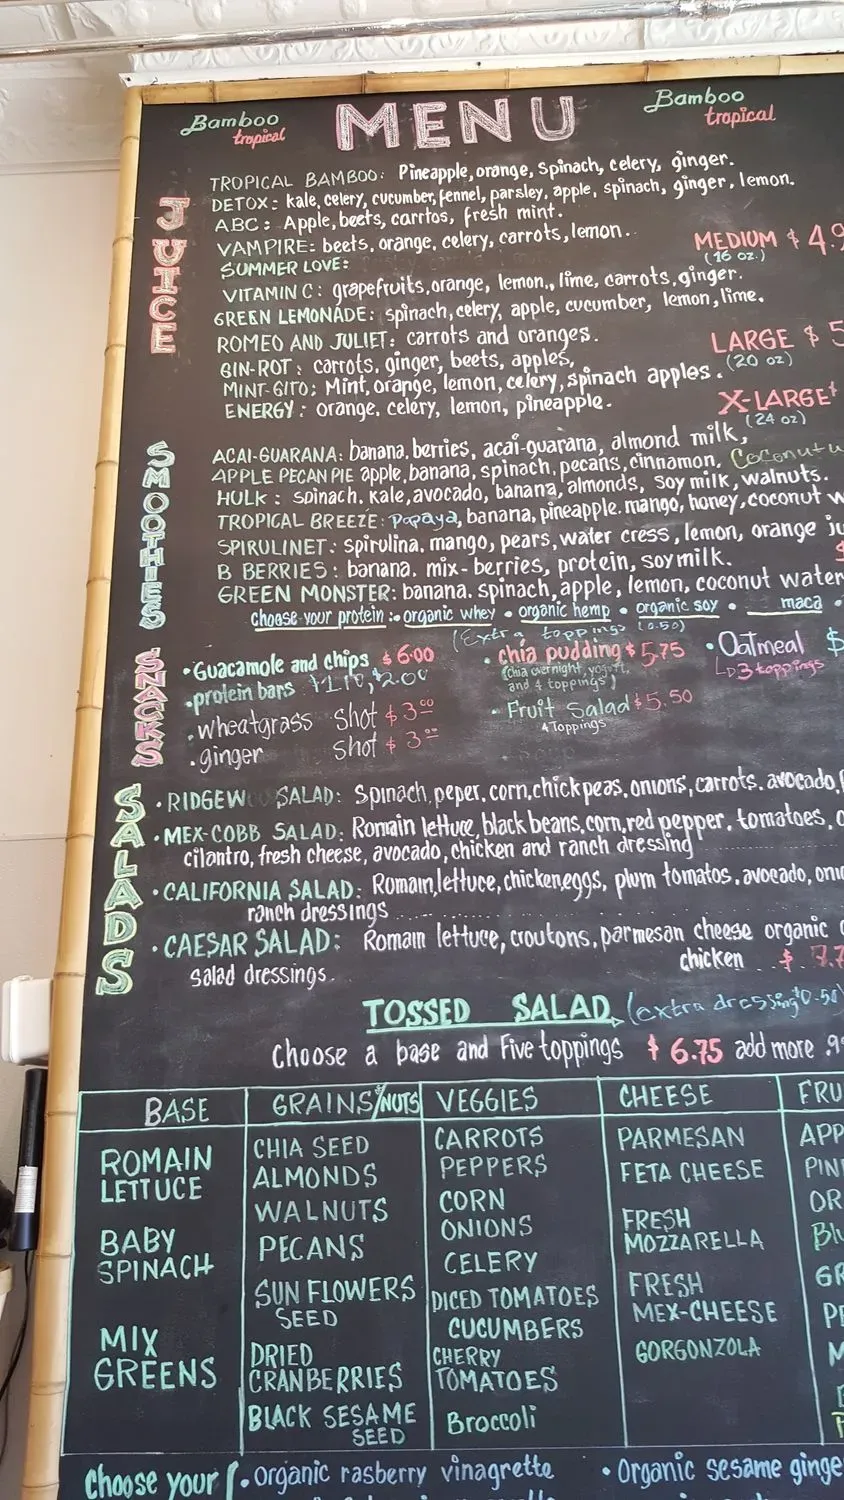 Bamboo tropical MENU Bamboo tropical
JUICE
TROPICAL BAMBOO: Pineapple, orange, spinach, celery, ginger.
DETOX: kale, celery, cucumber, fennel, parsley, apple, spinach, ginger, lemon.
ABC: Apple, beets, carrtos, fresh mint.
VAMPIRE: beets. orange, celery, carrots, lemon.
MEDIUM $ 4.9
(16 oz.)
SUMMER LOVE:
VITAMIN C: grapefruits, orange, lemon., lime, carrots, ginger.
GREEN LEMONADE: spinach, celery, apple, cucumber, lemon, lime.
ROMEO AND JULIET: carrots and oranges.
LARGE $ 5
(20 oz)
GIN-ROT: carrots, ginger, beets, apples,
MINT-GITO: Mint, orange, lemon, celery, spinach apples.
ENERGY: orange, celery, lemon, pineapple.
X-LARGE
(24 oz)
SMOOTHIES
ACAI-GUARANA: banana, berries, acai-guarana, almond milk,
APPLE PECAN PIE apple, banana, spinach, pecans, cinnamon,
HULK: spinach. Kale, avocado, banana, almonds, soy milk, walnuts.
TROPICAL BREEZE: Papaya, banana, pineapple. mango, honey, coconut w
SPIRULINET: spirulina. mango, pears, water cress, lemon, orange ju
B BERRIES: banana. mix-berries, protein, soy milk.
GREEN MONSTER: banana. spinach, apple, lemon, coconut water
choose your protein: • organic whey • organic hemp • organic soy • maca •
(Extra toppings (0.50)
SNACKS
• Guacamole and chips $6.00
• protein bars $2.00
• wheatgrass shot $3.00
• ginger shot $3.00
• chia pudding $5.75
(Chia overnight, yogurt, and 4 toppings)
• Fruit Salad $5.50
4 Toppings
• Oatmeal $
3 toppings
SALADS
• RIDGEW SALAD: Spinach, peper. corn, chickpeas, onions, carrots. avocado,
• MEX-COBB SALAD: Romain lettuce, black beans, corn, red pepper. tomatoes,
cilantro, fresh cheese, avocado, chicken and ranch dressing
• CALIFORNIA SALAD: Romain, lettuce, chicken, eggs, plum tomatos, avocado, oni
ranch dressings
• CAESAR SALAD: Romain lettuce, croutons, parmesan cheese organic
chicken $ 7.7
salad dressings.
TOSSED SALAD (extra dressing $0.50)
Choose a base and Five toppings $ 6.75 add more .9
BASE
ROMAIN
LETTUCE
BABY
SPINACH
MIX
GREENS
GRAINS/NUTS
CHIA SEED
ALMONDS
WALNUTS
PECANS
SUN FLOWERS
SEED
DRIED
CRANBERRIES
BLACK SESAME
SEED
VEGGIES
CARROTS
PEPPERS
CORN
ONIONS
CELERY
DICED TOMATOES
CUCUMBERS
CHERRY
TOMATOES
Broccoli
CHEESE
PARMESAN
FETA CHEESE
FRESH
MOZZARELLA
FRESH
MEX-CHEESE
GORGONZOLA
FRU
APP
PIN
OR
Blu
GR
PE
M
Choose your • Organic rasberry vinagrette • Organic sesame ginge